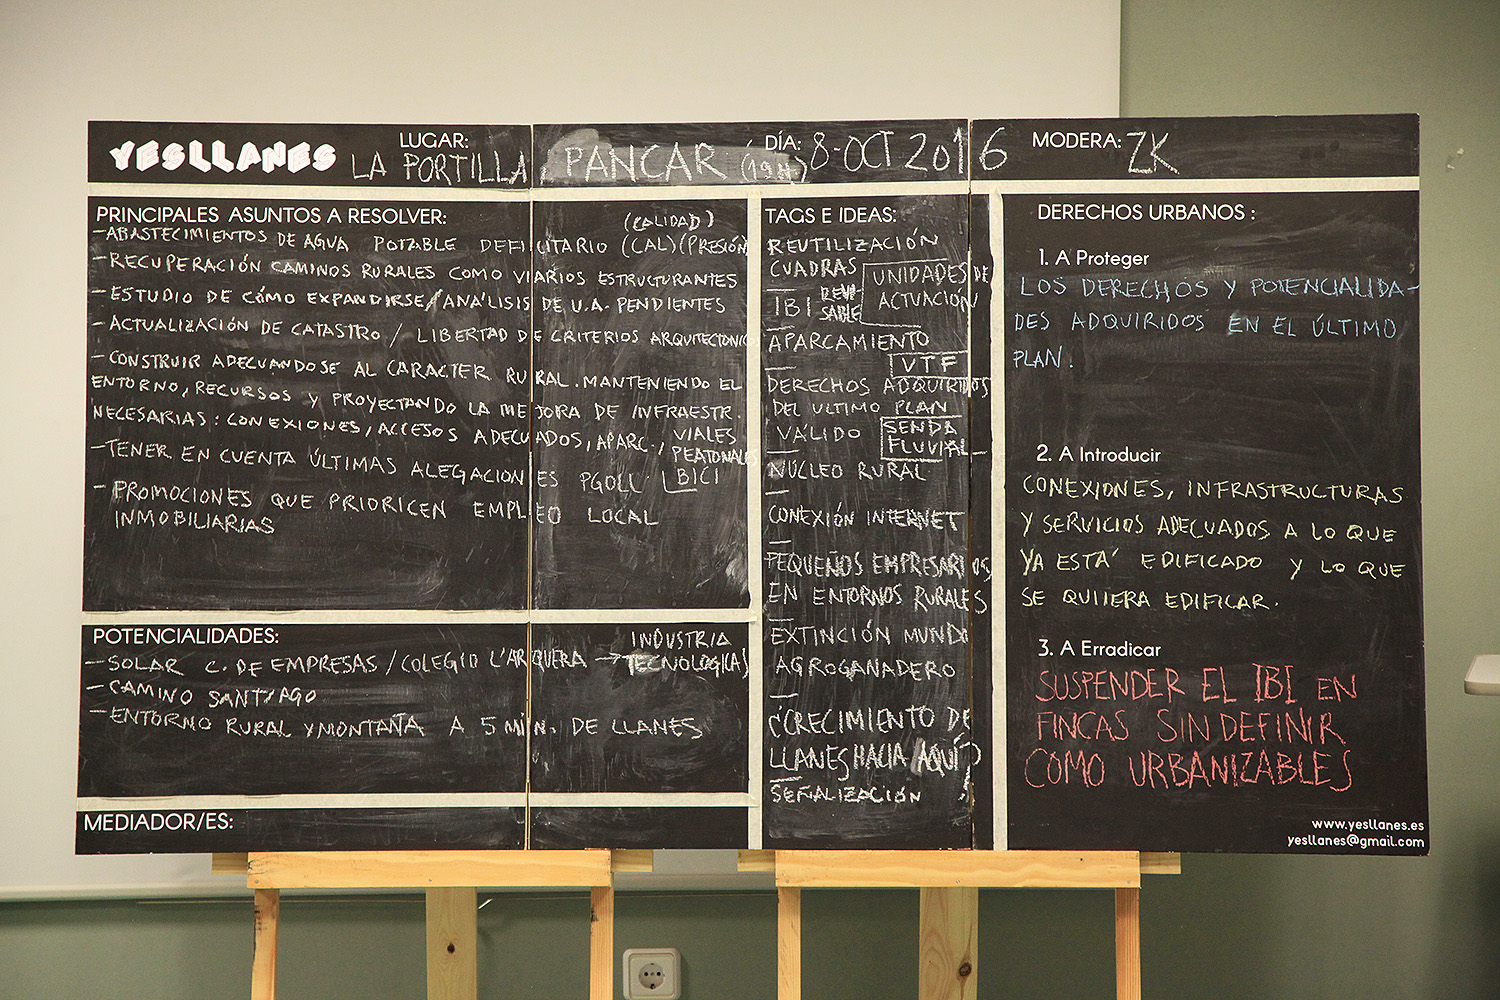 YESLLANES
LUGAR:
LA PORTILLA, PANCAR (19H.)
DÍA: 8-OCT 2016
MODERA: ZK
PRINCIPALES ASUNTOS A RESOLVER:
(CALIDAD)
-ABASTECIMIENTOS DE AGUA POTABLE DEFICITARIO (CAL)(PRESIÓN)
-RECUPERACIÓN CAMINOS RURALES COMO VIARIOS ESTRUCTURANTES
-ESTUDIO DE CÓMO EXPANDIRSE/ANÁLISIS DE U.A. PENDIENTES
-ACTUALIZACIÓN DE CATASTRO / LIBERTAD DE CRITERIOS ARQUITECTONICO
-CONSTRUIR ADECUANDOSE AL CARACTER RURAL. MANTENIENDO EL
ENTORNO, RECURSOS Y PROYECTANDO LA MEJORA DE INFRAESTR.
NECESARIAS: CONEXIONES, ACCESOS ADECUADOS, APARC., VIALES
PEATONALES
BICI
-TENER EN CUENTA ÚLTIMAS ALEGACIONES PGOLL.
-PROMOCIONES QUE PRIORICEN EMPLEO LOCAL
INMOBILIARIAS
POTENCIALIDADES:
-SOLAR C. DE EMPRESAS/COLEGIO L'ARQUERA → INDUSTRIA
TECNOLÓGICAS
-CAMINO SANTIAGO
-ENTORNO RURAL Y MONTAÑA A 5 MIN. DE LLANES
MEDIADOR/ES:
TAGS E IDEAS:
REUTILIZACIÓN
CUADRAS
UNIDADES DE
ACTUACION
IBI REVI-
SABLE
APARCAMIENTO
VTF
DERECHOS ADQUIRIDOS
DEL ULTIMO PLAN
VÁLIDO
SENDA
FLUVIAL
NÚCLEO RURAL
CONEXIÓN INTERNET
PEQUEÑOS EMPRESARIOS
EN ENTORNOS RURALES
EXTINCIÓN MUNDO
AGROGANADERO
¿CRECIMIENTO DE
LLANES HACIA AQUÍ?
SEÑALIZACIÓN
DERECHOS URBANOS :
1. A Proteger
LOS DERECHOS Y POTENCIALIDA-
DES ADQUIRIDOS EN EL ÚLTIMO
PLAN.
2. A Introducir
CONEXIONES, INFRASTRUCTURAS
Y SERVICIOS ADECUADOS A LO QUE
YA ESTÁ EDIFICADO Y LO QUE
SE QUIIERA EDIFICAR.
3. A Erradicar
SUSPENDER EL IBI EN
FINCAS SIN DEFINIR
COMO URBANIZABLES
www.yesllanes.es
yesllanes@gmail.com